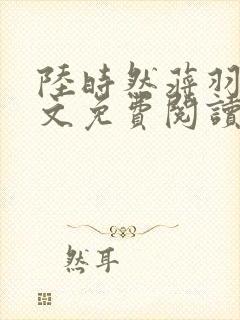 陸時然蒋羽
文免費閱讀
然耳